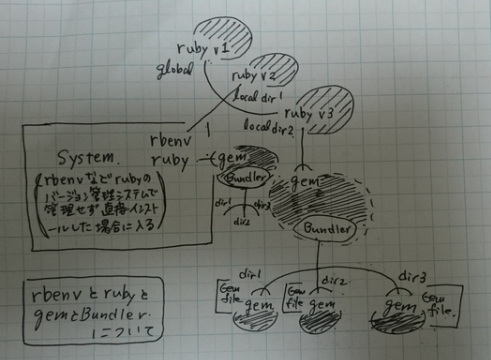 ruby v1
global
ruby v2
local dir1
ruby v3
local dir2
rbenv
ruby
gem
Bundler
dir1
dir2
dir3
System.
rbenvなどrubyの
バージョン管理システムで
管理せず直接インスト
ールした場合に入る
gem
Bundler
dir1
dir2
dir3
Gem
file
gem
Gem
file
gem
Gem
file.
gem
rbenvとrubyと
gemとBundler.
について